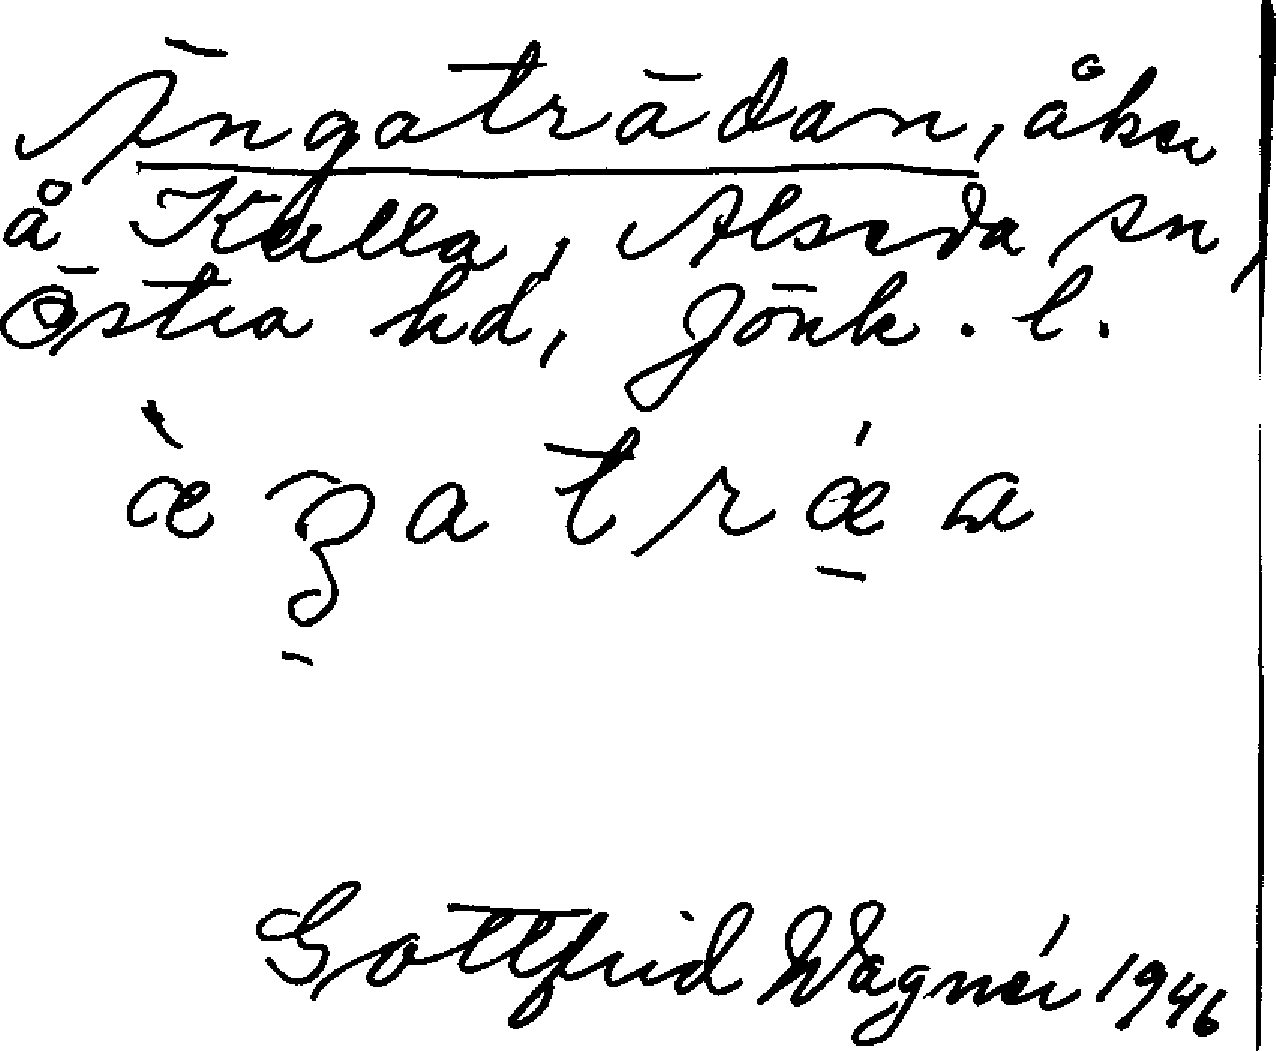 Ängaträdan, åker
å Kulla, Alseda sn,
Östra hd, Jönk. l.
æ̀ŋatrǽa
Gottfrid Wagnér 1946